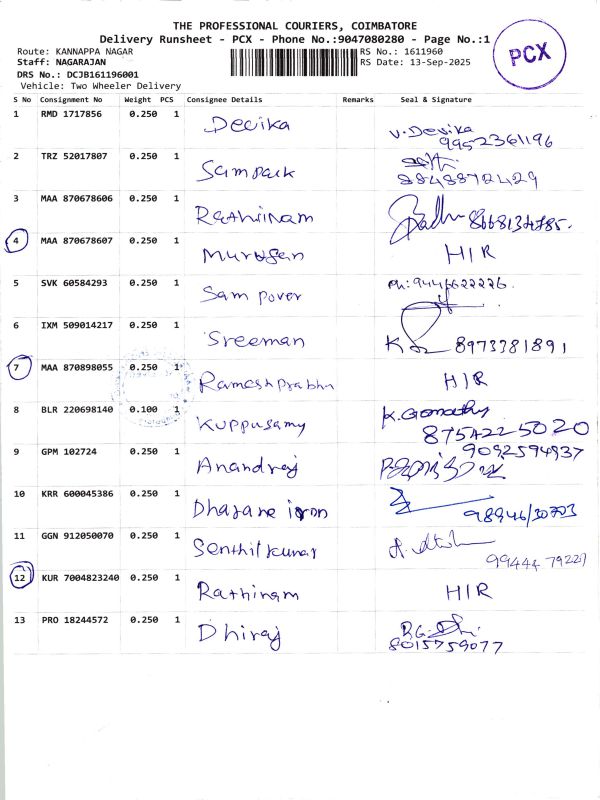 THE PROFESSIONAL COURIERS, COIMBATORE
Delivery Runsheet - PCX - Phone No.:9047080280 - Page No.:1
PCX
Route: KANNAPPA NAGAR RS No.: 1611960
Staff: NAGARAJAN RS Date: 13-Sep-2025
DRS No.: DCJB161196001
Vehicle: Two Wheeler Delivery
S No Consignment No Weight PCS Consignee Details Remarks Seal & Signature
1 RMD 1717856 0.250 1 Devika V. Devika
9952361196
2 TRZ 52017807 0.250 1 Sampark
8848872429
3 MAA 870678606 0.250 1 Rathinam
4 MAA 870678607 0.250 1 Murugan HIR
5 SVK 60584293 0.250 1 Sam pover Ph: 9446622226.
6 IXM 509014217 0.250 1 Sreeman
8973381891
7 MAA 870898055 0.250 1 Ramesh prabhu HIR
8 BLR 220698140 0.100 1 Kuppusamy K. Gomathy
8754225020
9 GPM 102724 0.250 1 Anandraj 9092594937
10 KRR 600045386 0.250 1
98946/30703
11 GGN 912050070 0.250 1 Senthil kumar
99444 79227
12 KUR 7004823240 0.250 1 Rathinam HIR
13 PRO 18244572 0.250 1 Dhiraj
8015759077